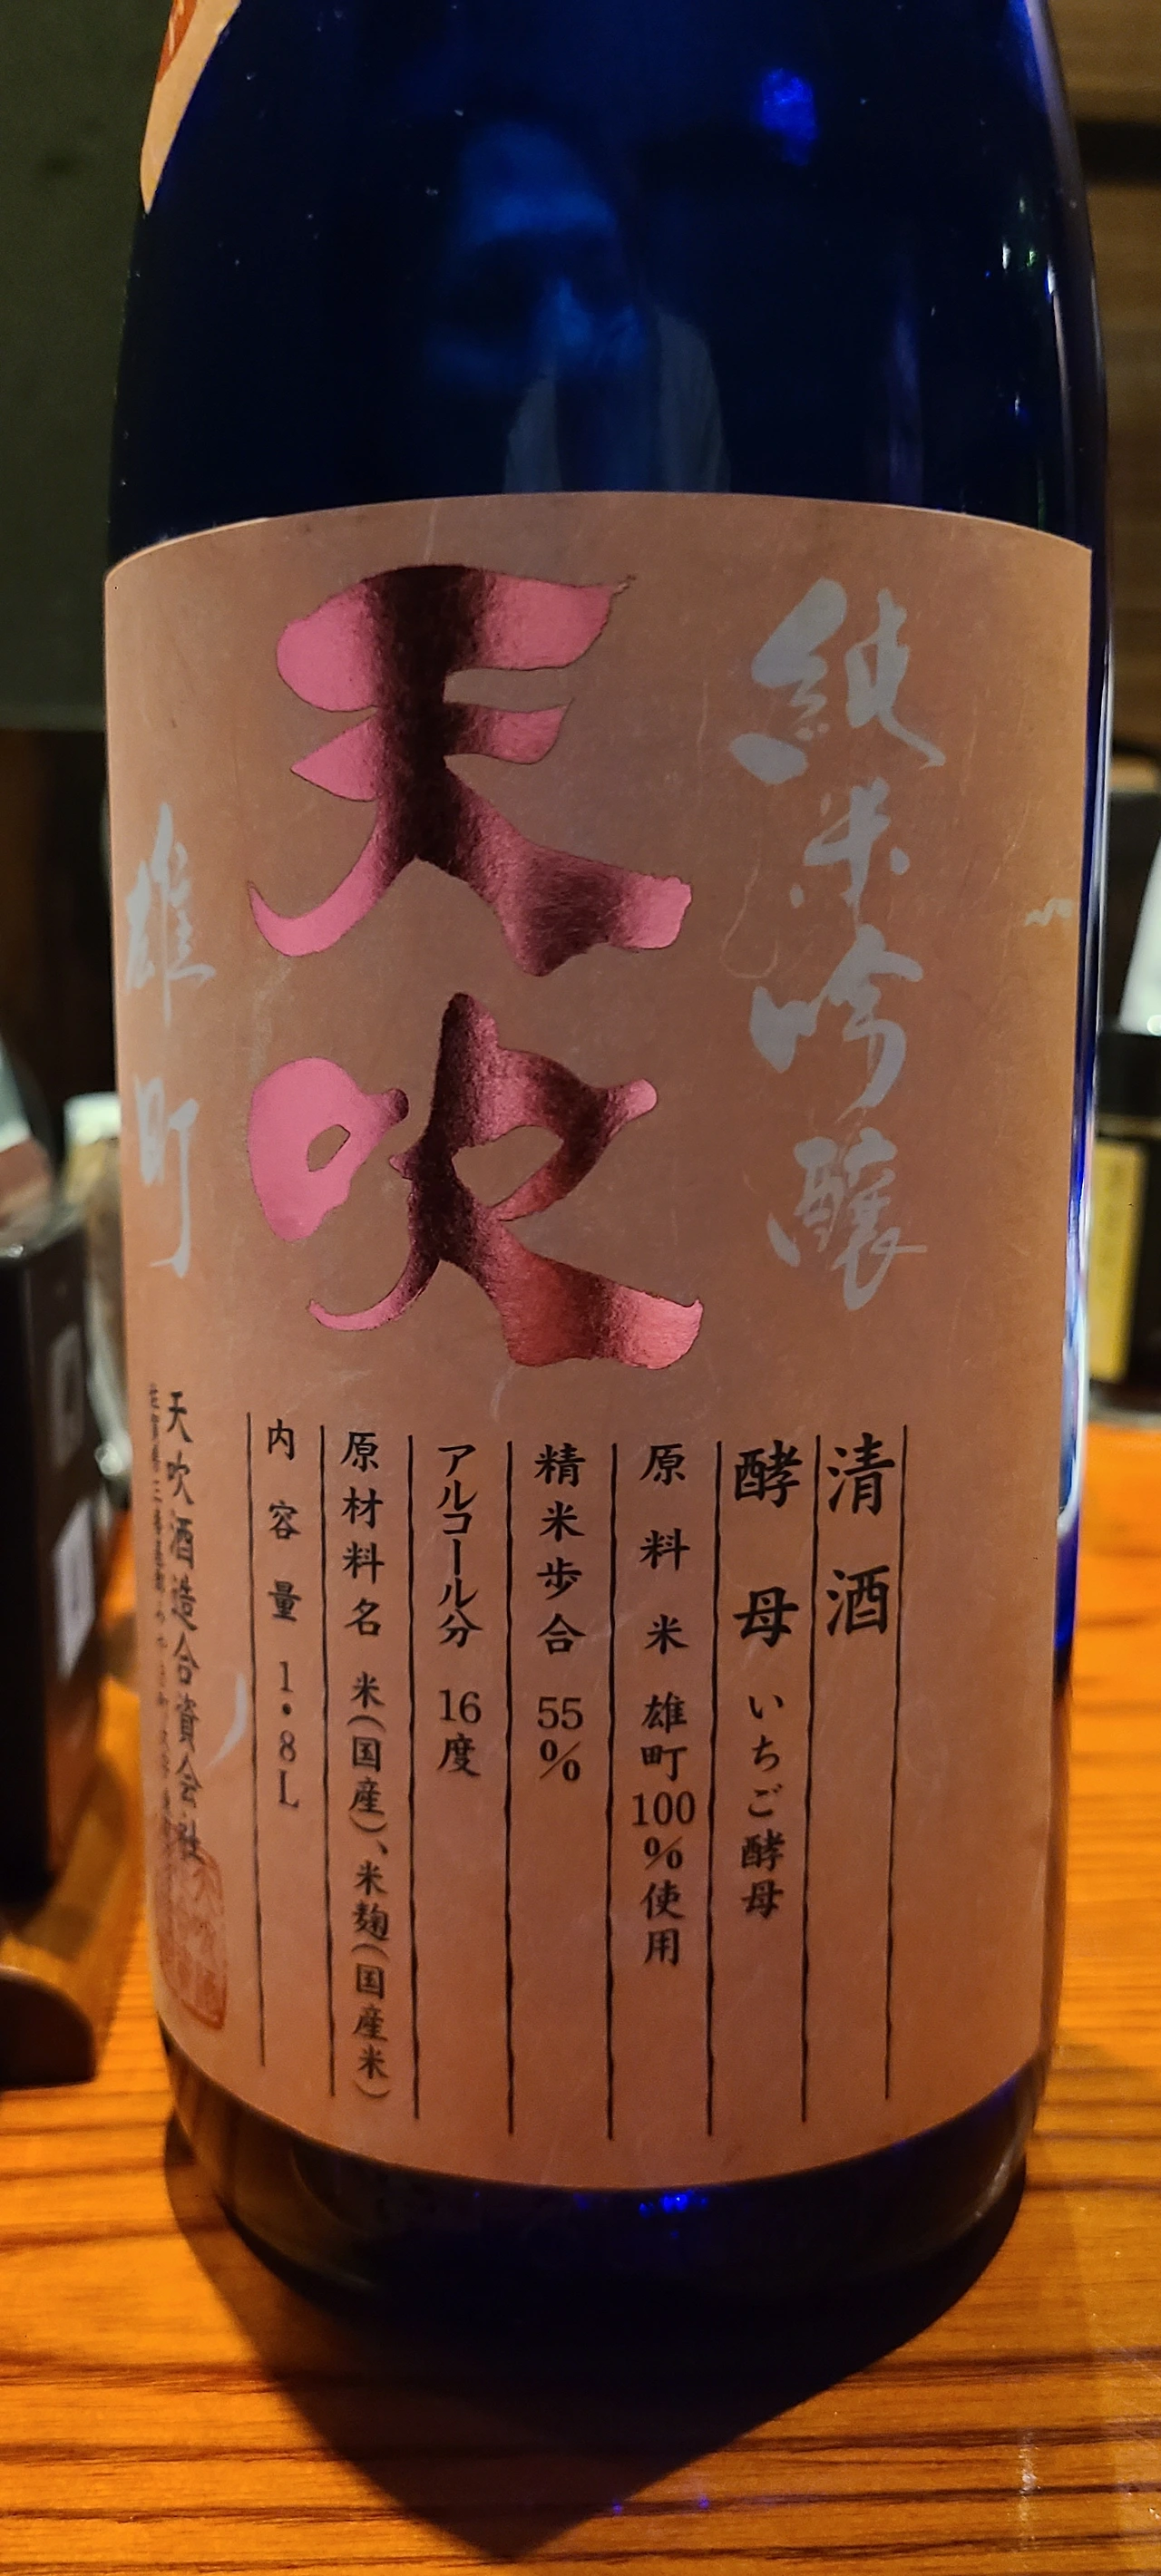 純米吟醸
天吹
雄町
清酒
酵母 いちご酵母
原料米 雄町100%使用
精米歩合 55%
アルコール分 16度
原材料名 米(国産)、米麹(国産米)
内容量 1.8L
天吹酒造合資会社